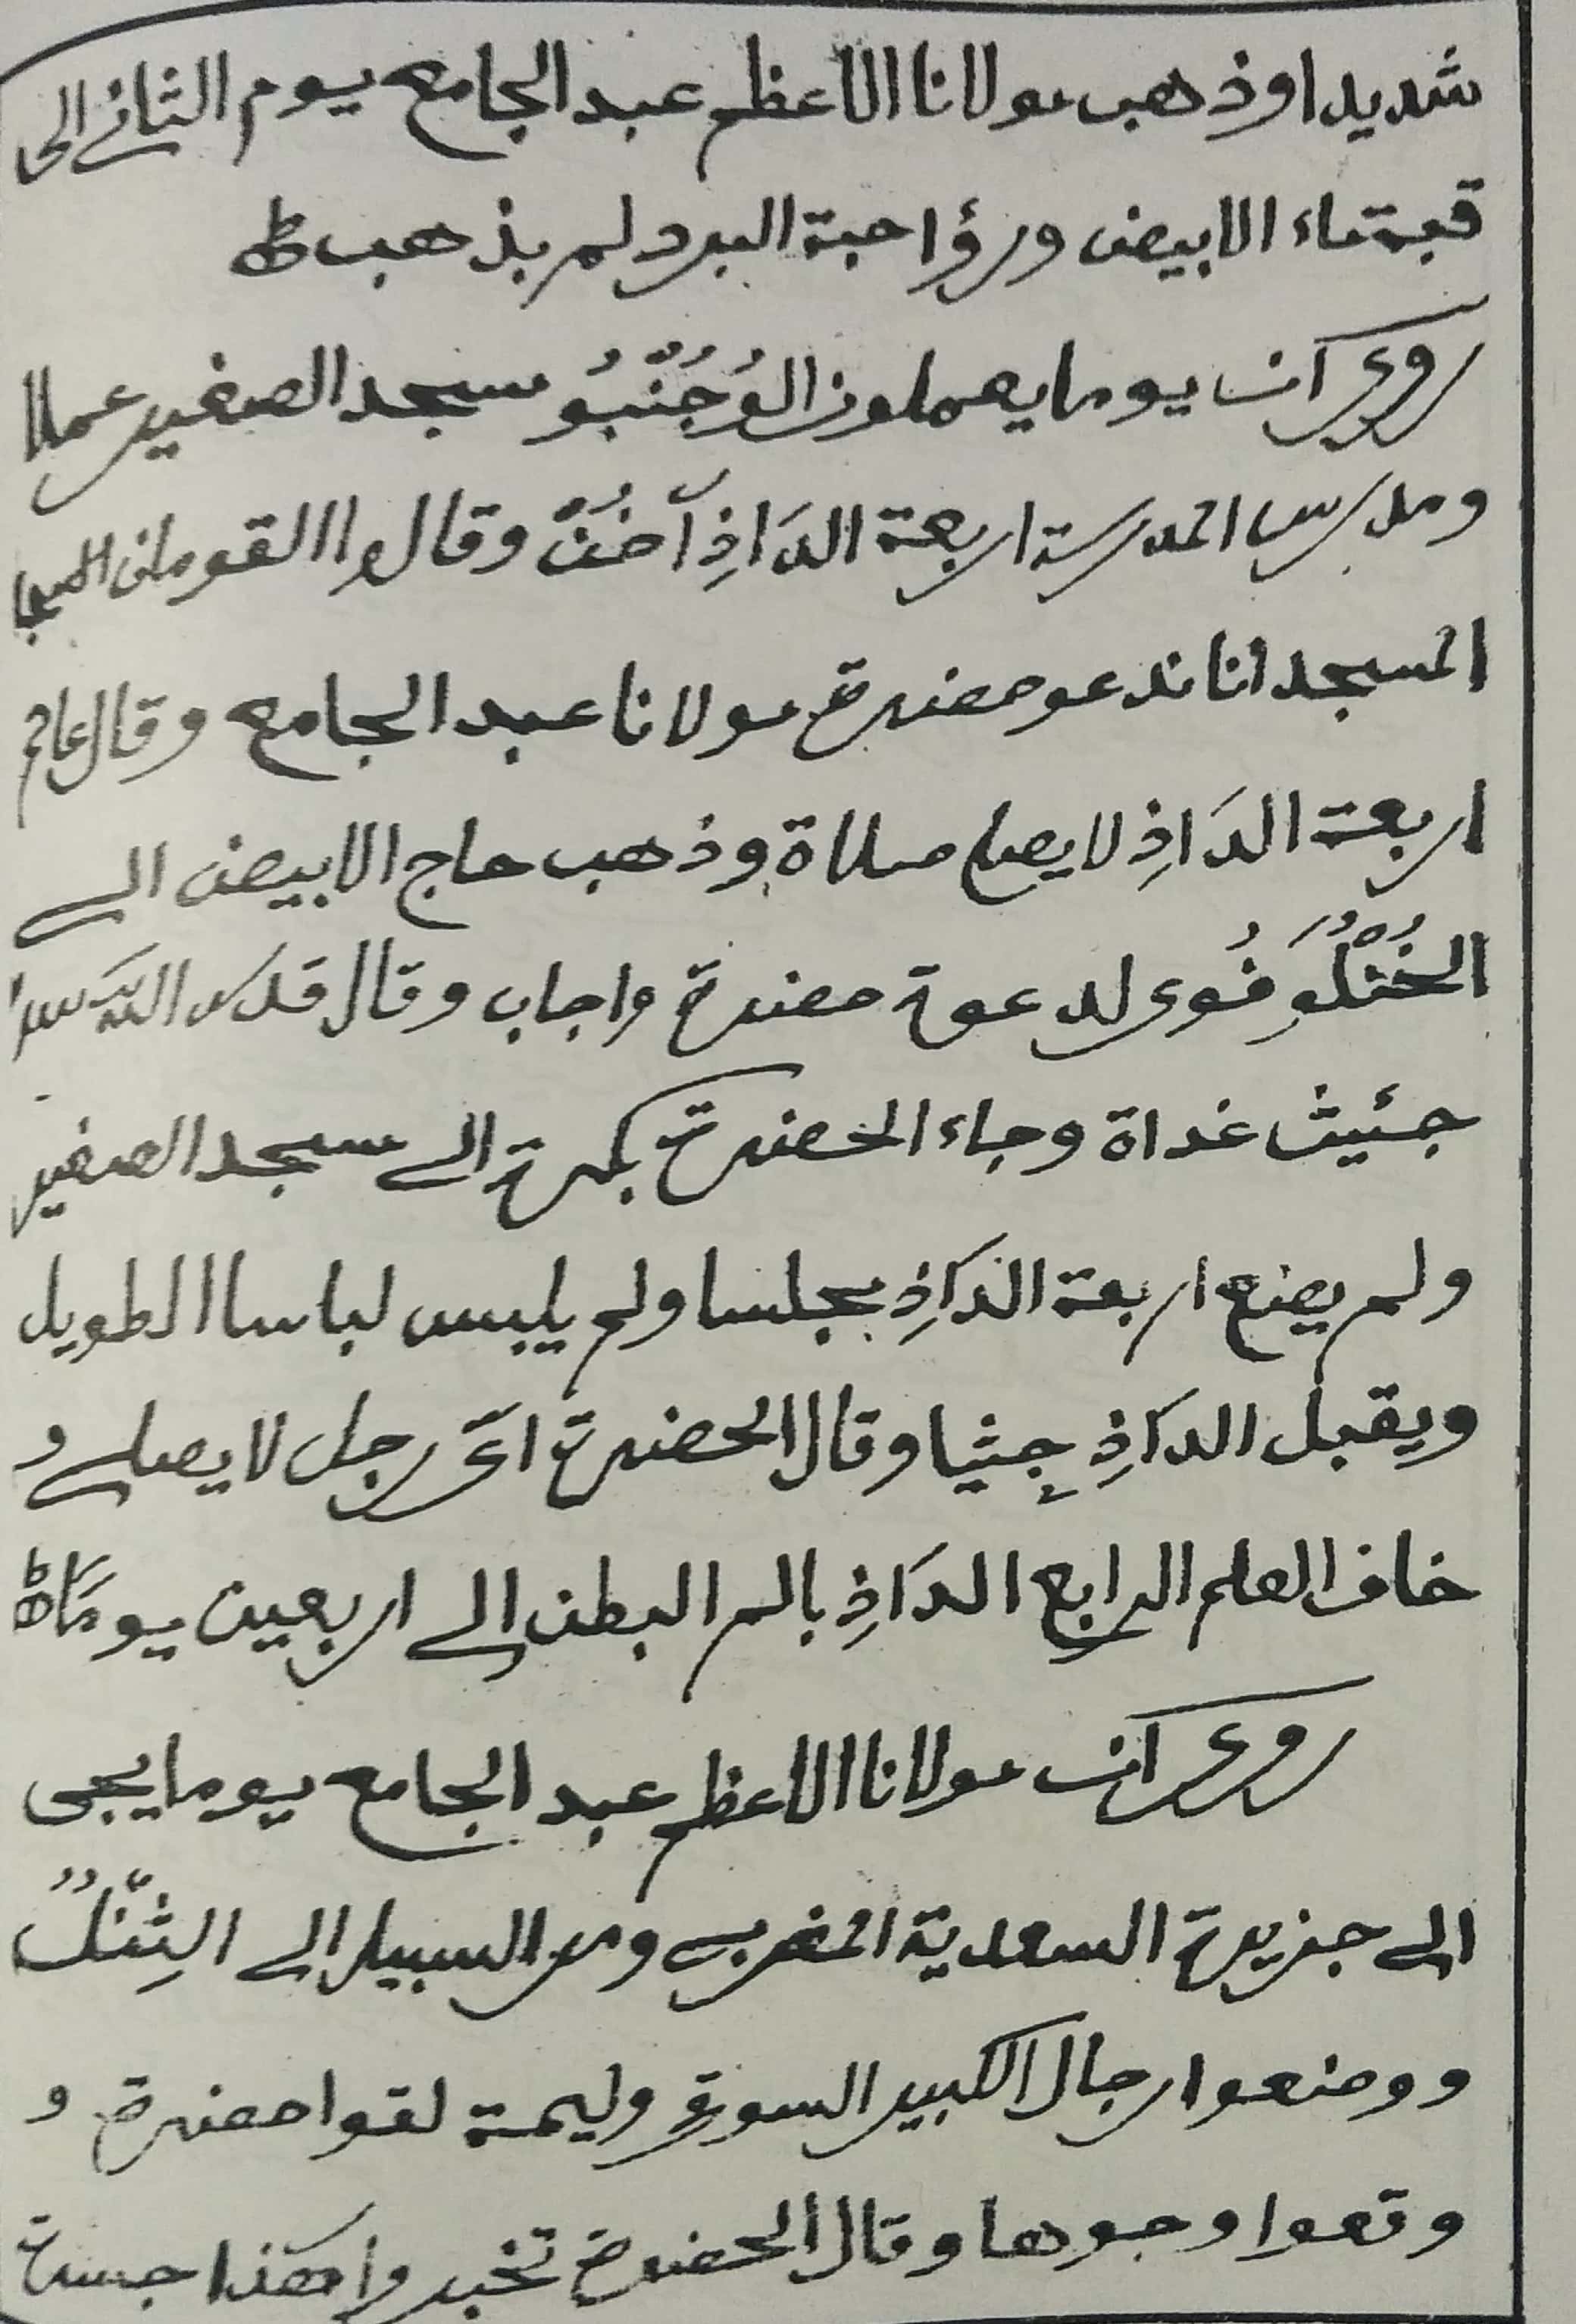 شديدا وذهب مولانا الاعظم عبد الجامع يوم الثاني الى
قبة ماء الابيض ورؤا حبة البرد ولم يذهب ط
روى ان يوما يعملون الوُجُنّبُو مسجد الصغير عملا
ومدرس المدرسة اربعة الدَاذِ وقال القوم
المسجد انا ندعو حضرة مولانا عبد الجامع وقال عالم
اربعة الدَاذِ لا يصلي صلاة وذهب حاج الابيض الى
فُوى لدعوة حضرة واجاب وقال
جئيث غداة وجاء الحضرة بكرة الى مسجد الصغير
ولم يصنع اربعة الدَاذِ مجلسا ولم يلبس لباسا الطويل
ويقبل الدَاذِ جِثيا وقال الحضرة اىّ رجل لا يصلى و
خاف العلم الرابع الدَاذِ بالم البطن الى اربعين يومًا ط
روى ان مولانا الاعظم عبد الجامع يوما يجى
الى جزيرة السعدية المغربى ومر السبيل الى الثِنّلُ
ووضعوا رجال الكبير السوق وليمة لقوا حضرة و
وقعوا وجوها وقال الحضرة تخبروا هكذا